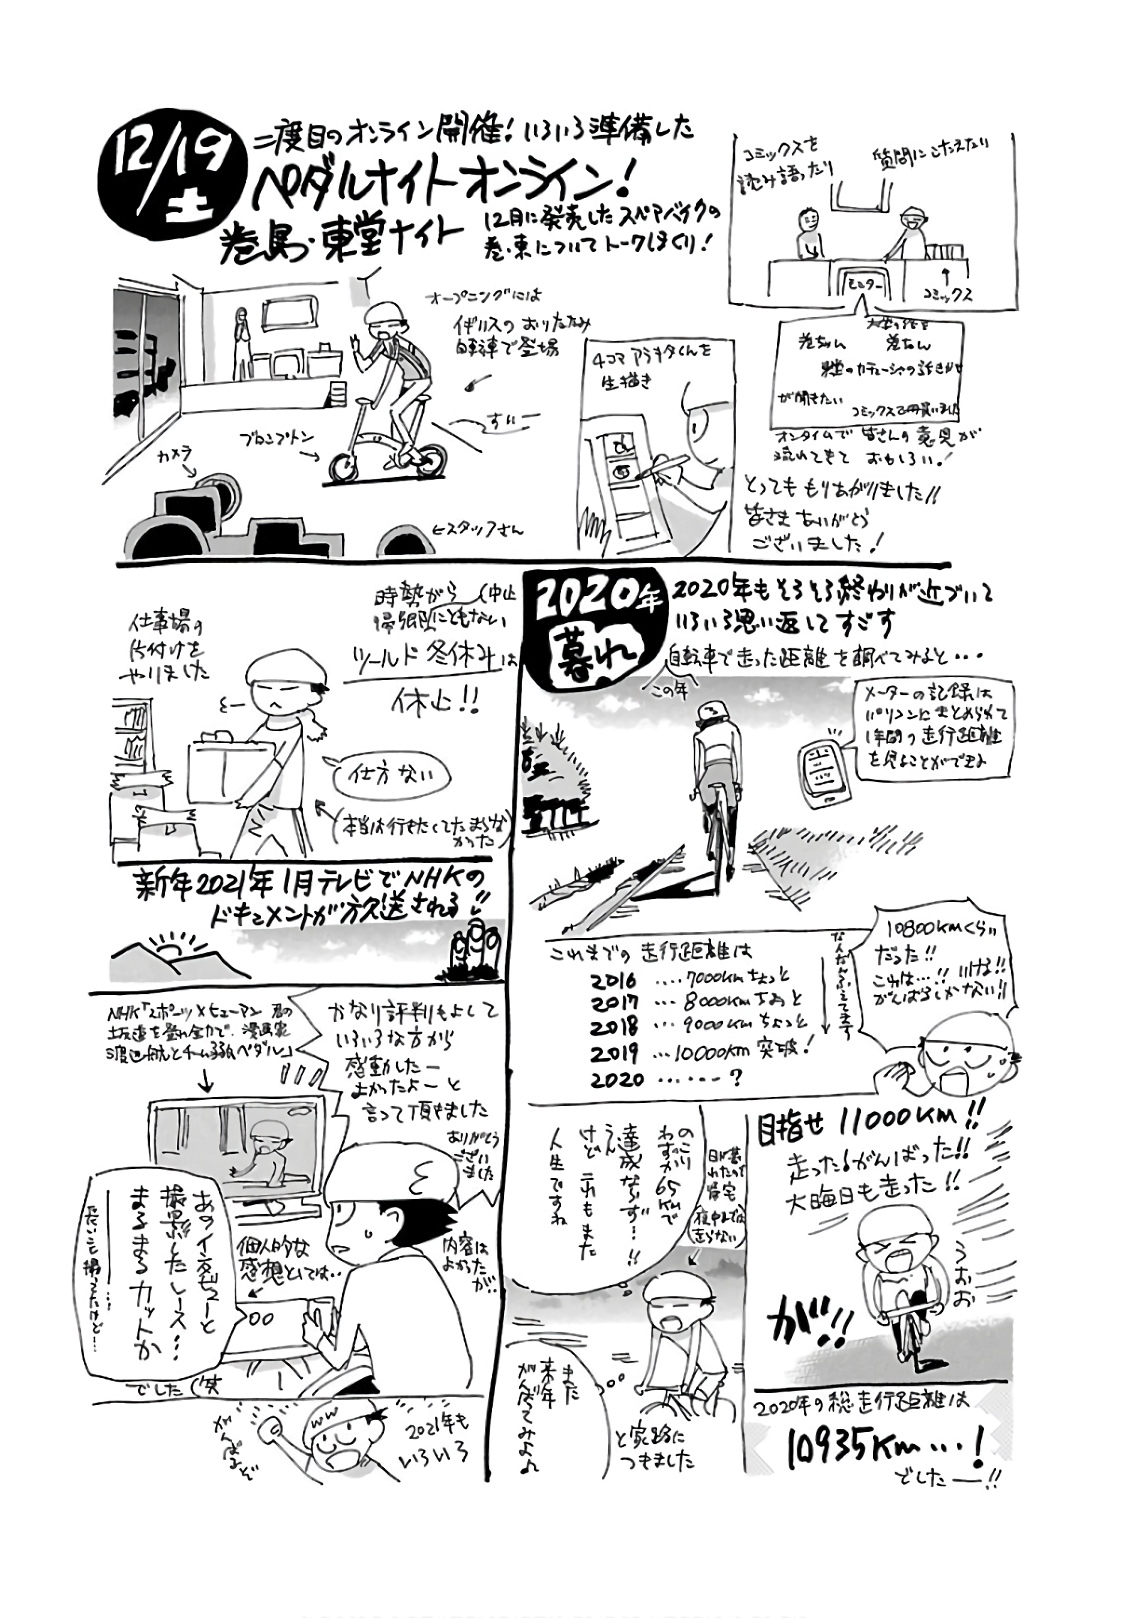 12/19
土
二度目のオンライン開催!いろいろ準備した
ペダルナイトオンライン!
巻島・東堂ナイト
12月に発売したスペアバイクの
巻・東についてトークしまくり!
コミックスを
読み語ったり
質問にこたえたり
モニター
コミックス
オープニングには
イギリスのおりたたみ
自転車で登場
すいー
ブロンプトン
カメラ
←スタッフさん
4コマアラキタくんを
生描き
巻ちゃん
巻ちゃん
東堂のカチューシャの話
が聞きたい
コミックス2冊買いました
オンタイムで皆さんの意見が
流れてきておもしろい!
とってももりあがりました!!
皆さまありがとう
ございました!
仕事場の
片付けを
やりました
時勢がら
帰郷
中止
にともない
ツールド冬休みは
休止!!
仕方ない
本当は行きたくてたまらな
かった
新年2021年1月テレビでNHKの
ドキュメントが放送される!!
NHK「スポーツ×ヒューマン 君の
坂道を登れ全力で 漫画家
渡辺航とチーム弱虫ペダル」
かなり評判もよくて
いろいろな方から
感動したー
よかったよーと
言って頂きました
ありがとう
ございました
内容は
よかったが…
個人的な
感想としては…
あのインタビューと
撮影したレース…
まるまるカットか
ーー…
たいへん撮ってたけど…
でした(笑
がんばるぞ
2021年も
いろいろ
2020年
暮れ
2020年もそろそろ終わりが近づいて
いろいろ思い返してすごす
自転車で走った距離を調べてみると・・・
この年
メーターの記録は
パソコンにまとめられて
1年間の走行距離
を見ることができる
これまでの走行距離は
2016 ....7000kmちょっと
2017 ...8000kmちょっと
2018 ...9000kmちょっと
2019 ...10000km突破!
2020 .......?
だんだんふえてます
10800kmくらい
だった!!
これは…!!
がんばるしかない!!
目指せ11000km!!
走った!がんばった!!
大晦日も走った!!
うおお
が!!
2020年の総走行距離は
10935km…!
でしたー!!
のこり
わずか65kmで
達成ならず…!!
うーん
けどこれもまた
人生ですね
日が暮
れたので
帰宅
夜中までは
走らない
また
来年
がんばってみよう
と家路に
つきました